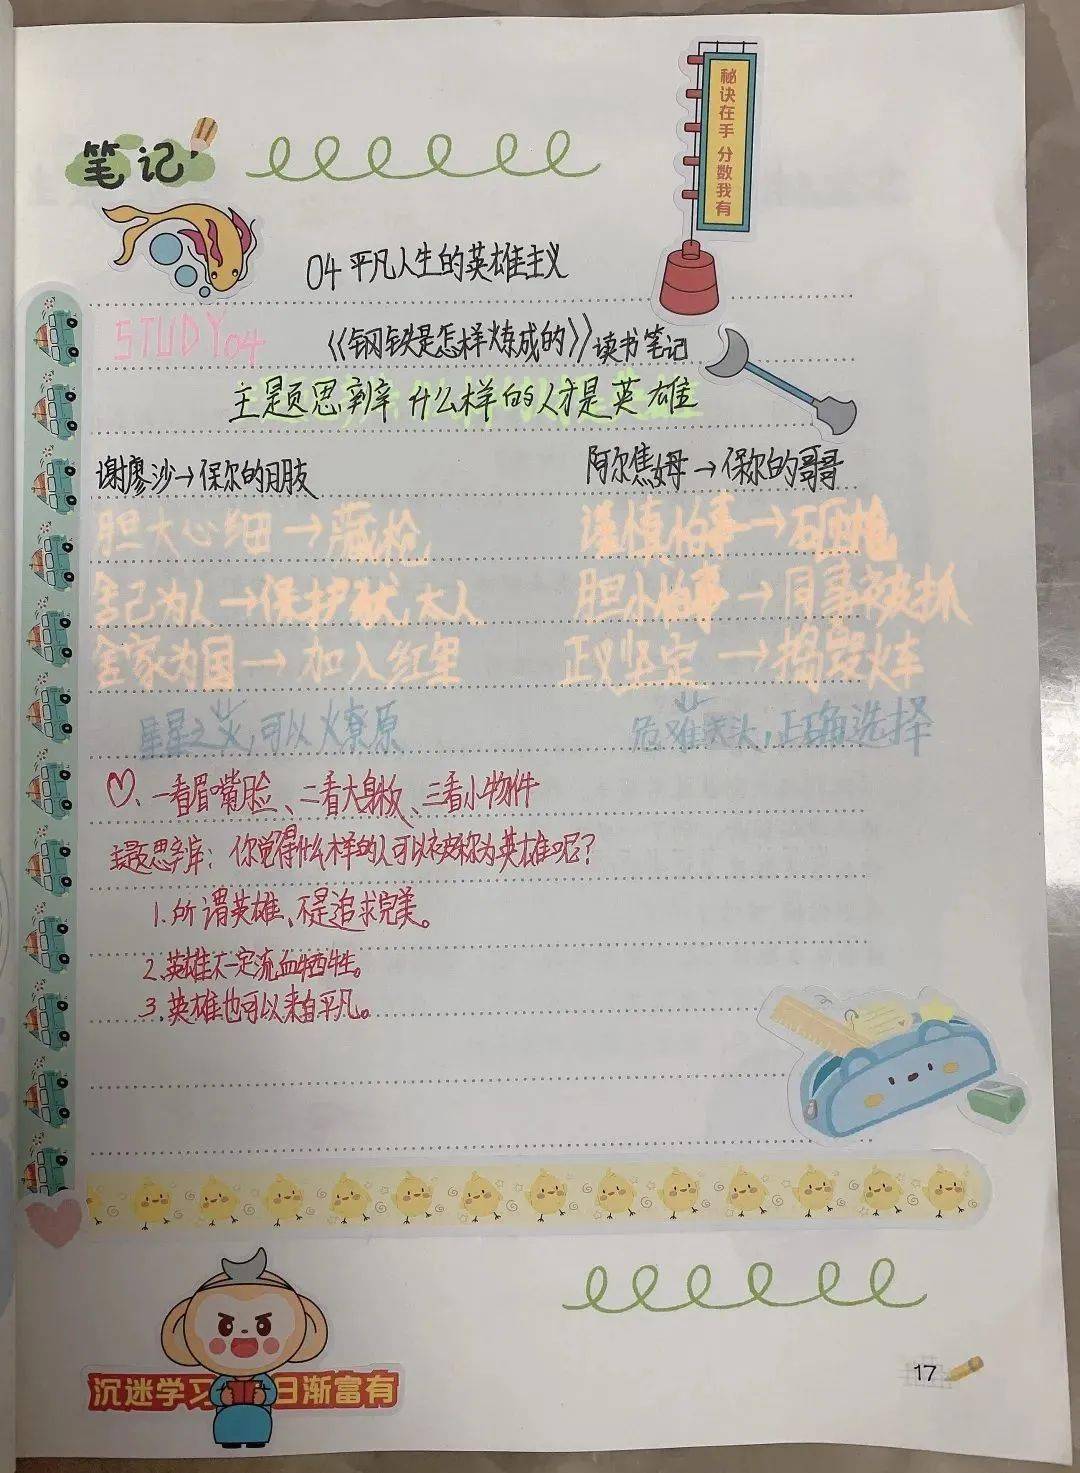 笔记
秘诀在手 分数我有
04 平凡人生的英雄主义
STUDY 04 《钢铁是怎样炼成的》读书笔记
主题思辨 什么样的人才是英雄
谢廖沙→保尔的朋友 阿尔焦姆→保尔的哥哥
胆大心细→藏枪 谨慎怕事→砸枪
舍己为人→保护犹太人 胆小怕事→同事被抓
舍家为国→加入红军 正义坚定→捣毁火车
星星之火,可以燎原 危难关头,正确选择
♡、一看眉嘴脸、二看大身板、三看小物件
主题思辨:你觉得什么样的人可以被称为英雄呢?
1.所谓英雄、不是追求完美。
2.英雄不一定流血牺牲。
3.英雄也可以来自平凡。
沉迷学习 日渐富有
17